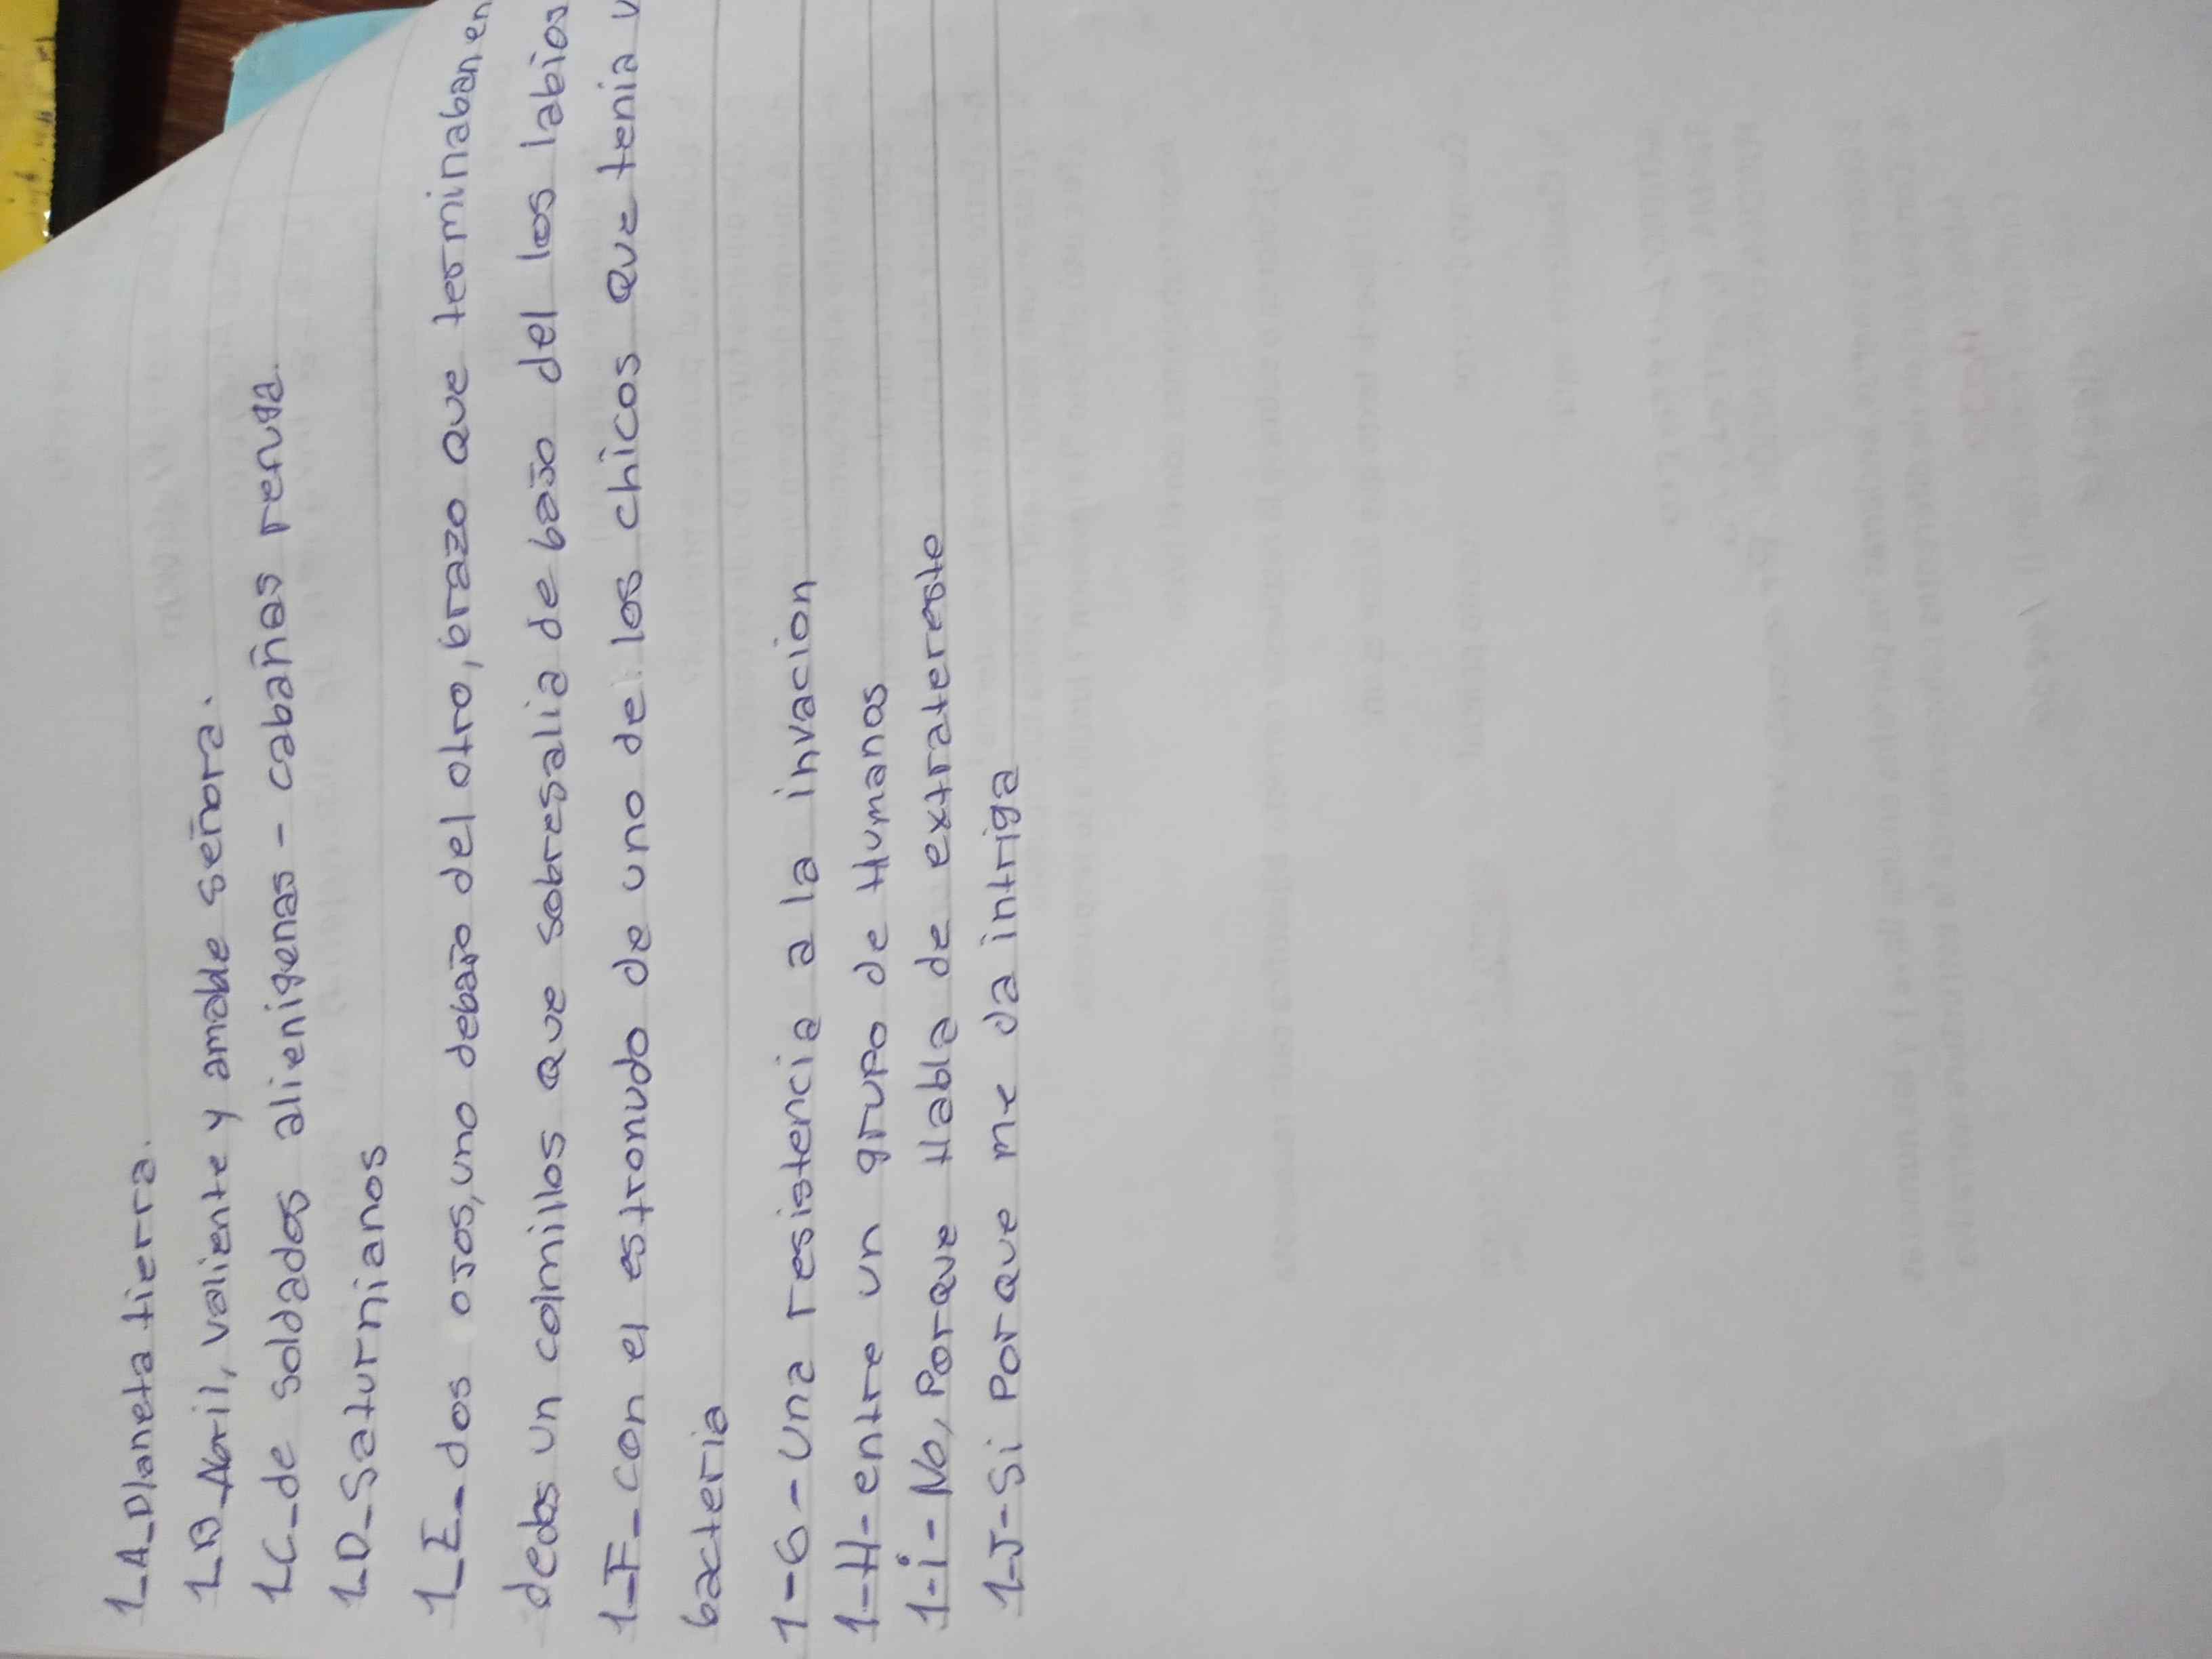 1_A_Planeta tierra.
1_B_Abril, valiente y amable señora.
1_C_de soldados alienigenas - cabañas renuga.
1_D_Saturnianos
1_E_dos ojos, uno debajo del otro, brazo que terminaban en
dedos un colmillos que sobresalia de bajo del los labios
1_F_con el estronudo de uno de los chicos que tenia
bacteria
1-G-Una resistencia a la invacion
1-H-entre un grupo de Humanos
1-i-No, Porque Habla de extratereste
1-J-Si Porque me da intriga